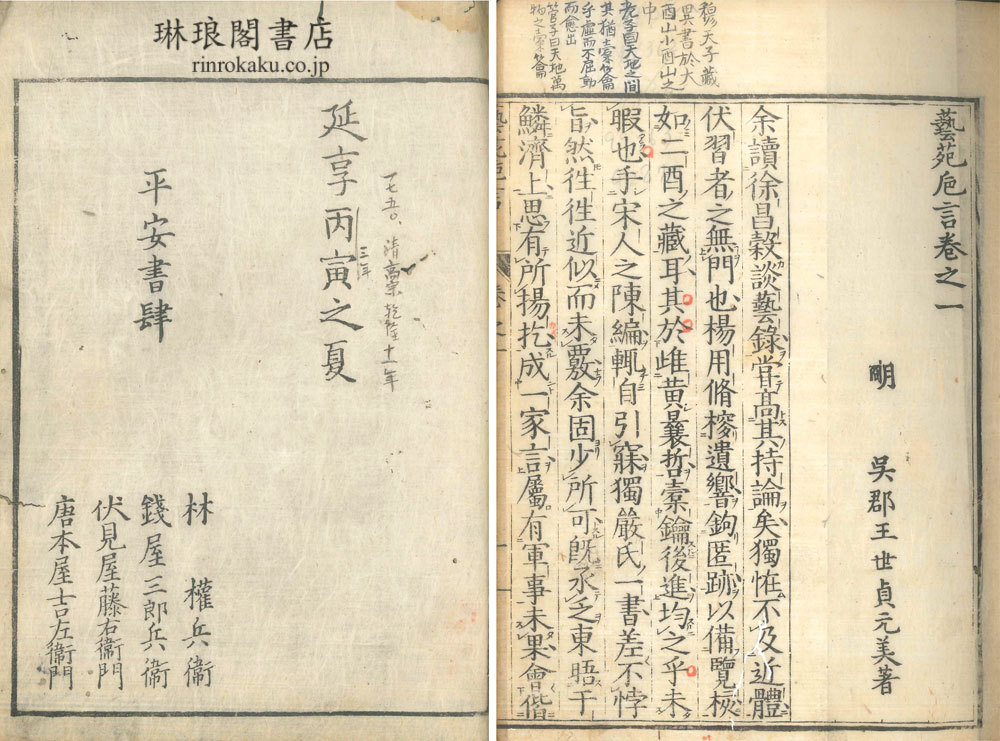 琳琅閣書店
rinrokaku.co.jp
穆天子藏
異書於大
酉山小酉山之
中
老子曰天地之間
其猶橐籥
乎虛而不屈動
而愈出
管子曰天地萬
物之橐籥
藝苑巵言卷之一
明 吳郡王世貞元美著
余讀徐昌榖談藝錄嘗高其持論矣獨恠不及近體
伏習者之無門也楊用脩搜遺響鉤匿跡以備覽核
如二酉之藏耳其於雌黃曩哲橐鑰後進均之乎未
暇也手宋人之陳編輒自引寐獨嚴氏一書差不悖
旨然徃徃近似而未覈余固少所可旣承乏東晤于
鱗濟上思有所揚扢成一家言屬有軍事未果會偕
一七五〇、清高宗乾隆十一年
三年
延享丙寅之夏
平安書肆
林 權兵衞
錢屋三郎兵衞
伏見屋藤右衞門
唐本屋吉左衞門